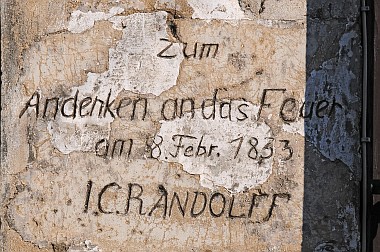 zum
Andenken an das Feuer
am 8. Febr. 1833
I.C.RANDOLFF